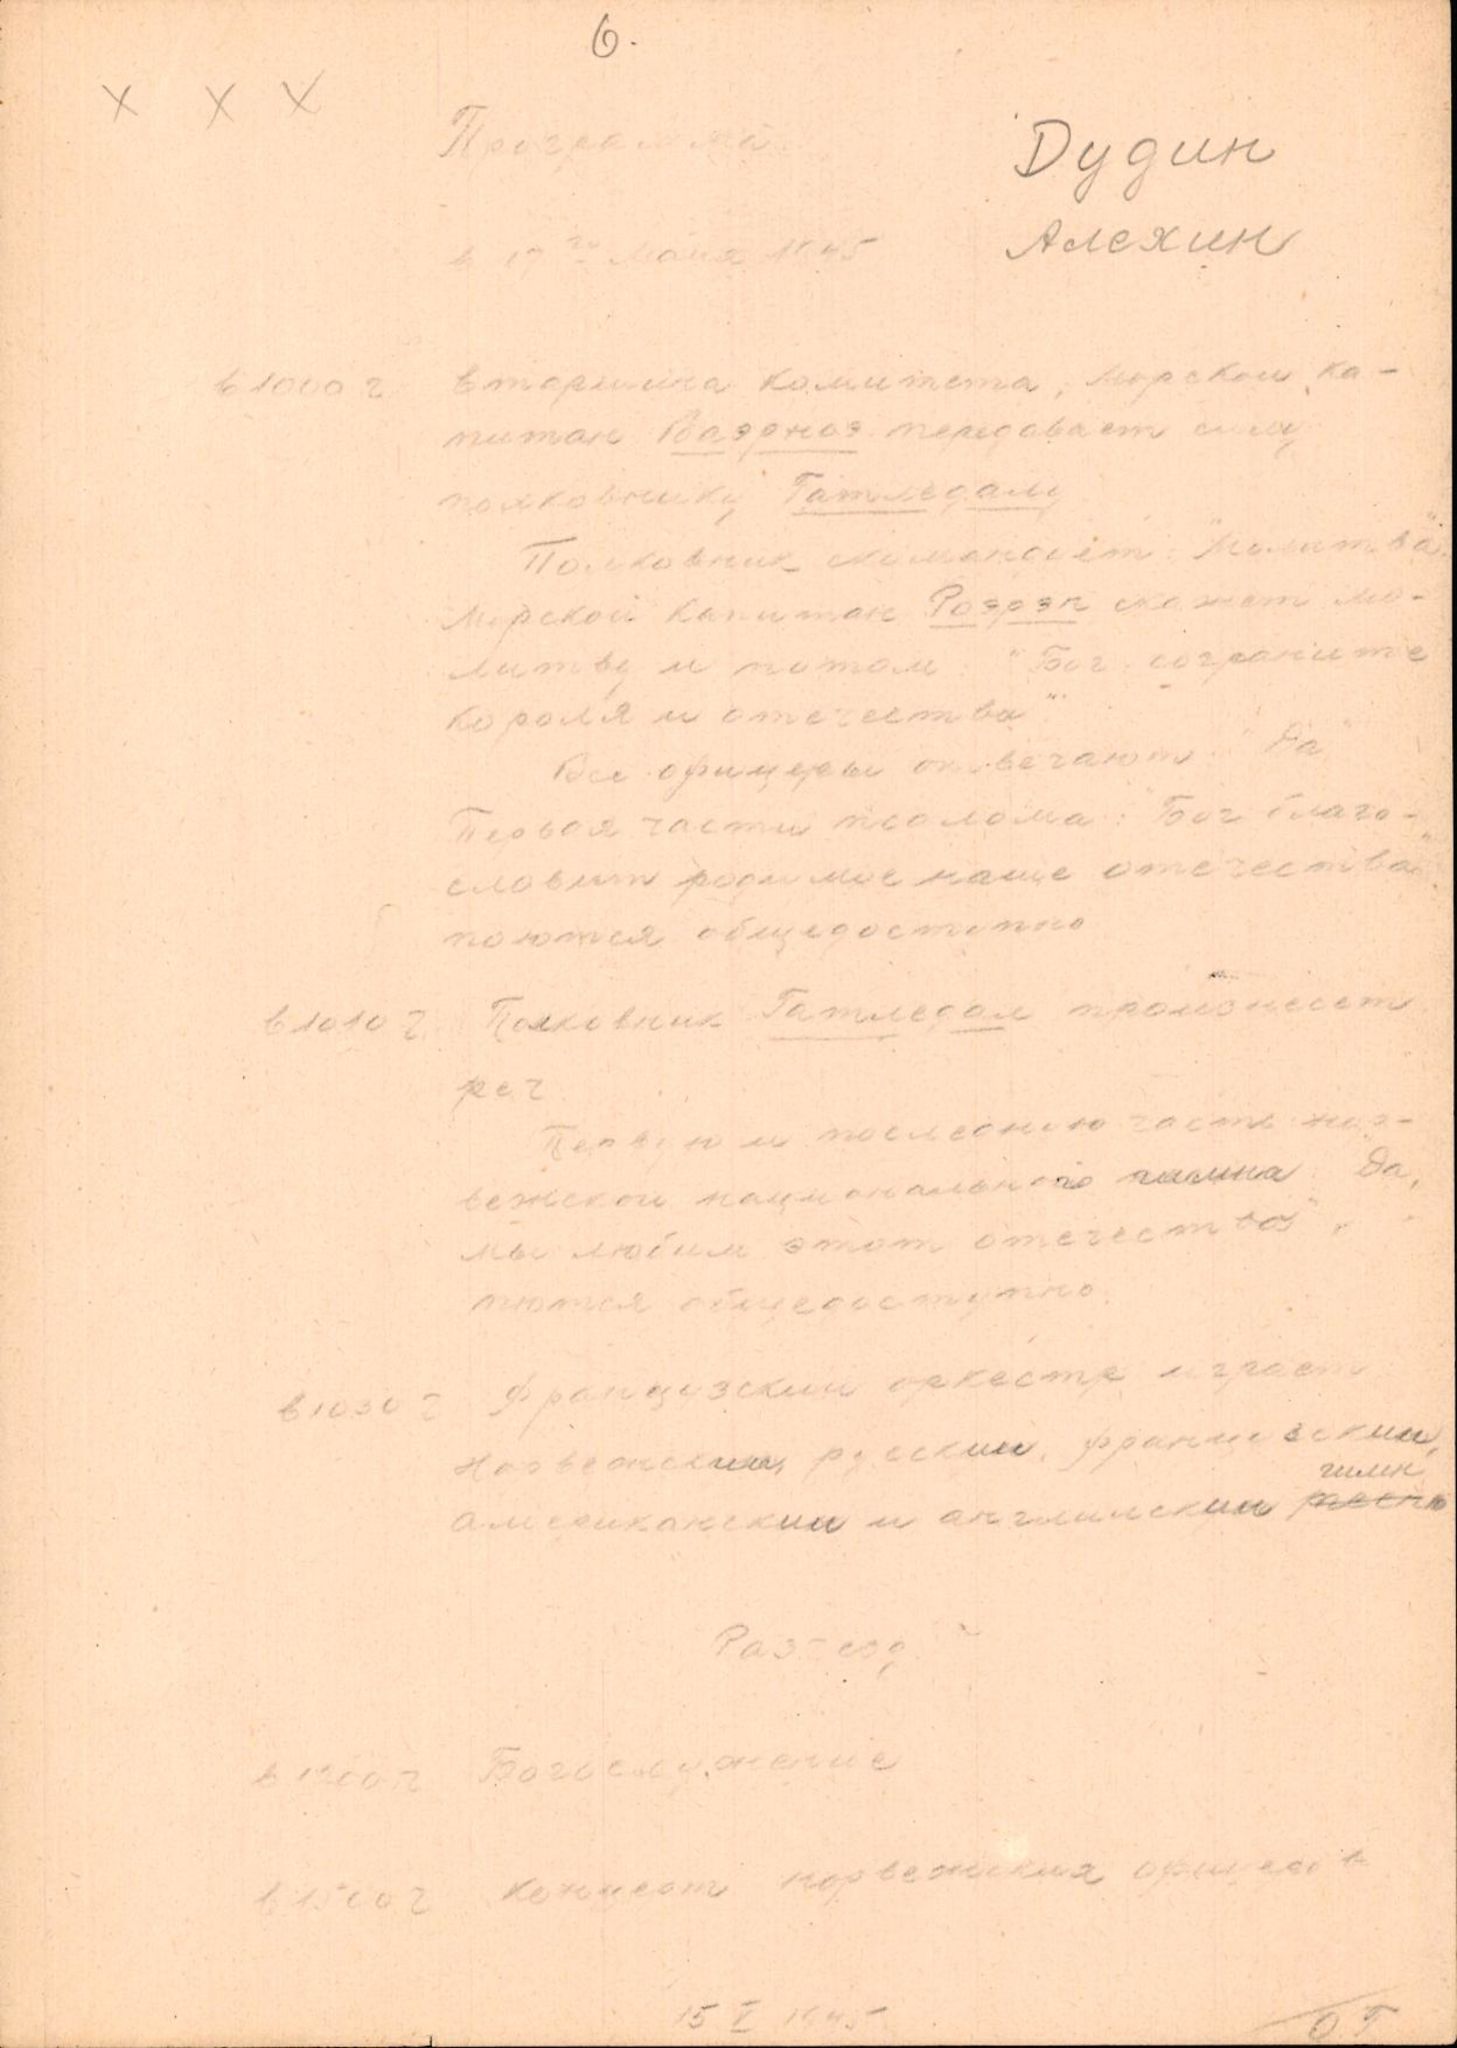 6.
х х х
Программа
Дудин
Алехин
в 17го майя 1945
в 1000 ч вторшина комитета, морской ка-
питан Ваэрноэ передавает силу
полковнику Гатледалу
Полковник скомандует: "Молитва".
Морской капитан Роэрэн скажет мо-
литву и потом "Бог сохраните
короля и отечества"
Все офицеры отвечают "Да"
Первоя части псолома: "Бог благо-
словит родимое наще отечества"
поются общедоступно
в 1010 ч. Полковник Гатледал произнесет
реч.
Первую и последнюю часть нор-
вежской национального гимна "Да,
мы любим этот отечества",
поются общедоступно.
в 1030 ч Французкий оркестр играет
норвежский, русский, французский,
гимн
американский и английский песню
Раз-ход
в 1200 ч Богослужение
в 1500 ч концерт норвежских офицеров
15 V 1945
ОГ